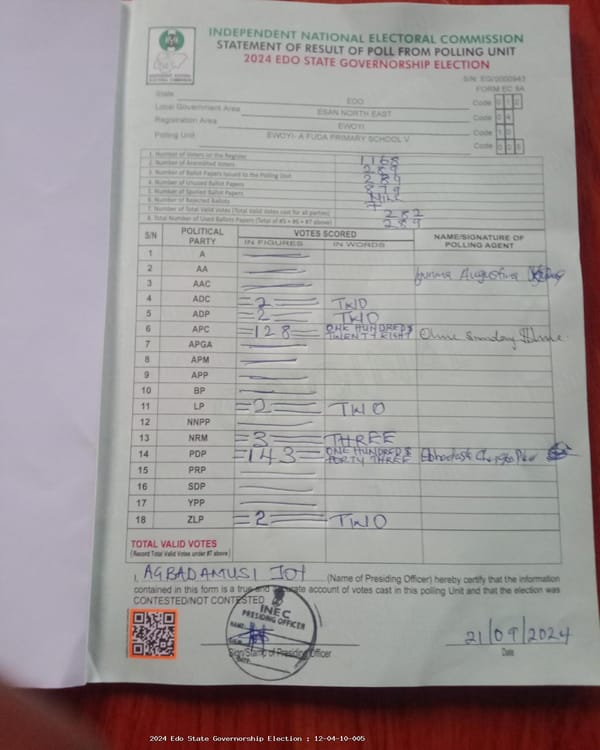 INDEPENDENT NATIONAL ELECTORAL COMMISSION
STATEMENT OF RESULT OF POLL FROM POLLING UNIT
2024 EDO STATE GOVERNORSHIP ELECTION
S/N: EG/0000943
FORM EC 8A
State EDO Code 0 1 2
Local Government Area ESAN NORTH EAST Code 0 4
Registration Area EWOYI Code 1 0
Polling Unit EWOYI- A FUDA PRIMARY SCHOOL V Code 0 0 5
1. Number of Voters on the Register 1,168
2. Number of Accredited Voters 289
3. Number of Ballot Papers Issued to the Polling Unit
4. Number of Unused Ballot Papers 879
5. Number of Spoiled Ballot Papers
6. Number of Rejected Ballots 7
7. Number of Total Valid Votes (Total Valid votes cast for all parties) 282
8. Total Number of Used Ballots Papers (Total of #5 + #6 + #7 above) 289
S/N POLITICAL PARTY VOTES SCORED NAME/SIGNATURE OF POLLING AGENT
IN FIGURES IN WORDS
1 A
2 AA Augustina
3 AAC
4 ADC =2= TWO
5 ADP =2= TWO
6 APC =128= ONE HUNDRED & TWENTY EIGHT Sunday
7 APGA
8 APM
9 APP
10 BP
11 LP =2= TWO
12 NNPP
13 NRM =3= THREE
14 PDP =143= ONE HUNDRED & FORTY THREE
15 PRP
16 SDP
17 YPP
18 ZLP =2= TWO
TOTAL VALID VOTES
(Record Total Valid Votes under #7 above)
I, AGBADAMUSI JOY (Name of Presiding Officer) hereby certify that the information
contained in this form is a true and accurate account of votes cast in this polling Unit and that the election was
CONTESTED/NOT CONTESTED
INEC
PRESIDING OFFICER
NAME:
SIGN:
DATE:
Sign/Stamp of Presiding Officer
21/09/2024
Date
2024 Edo State Governorship Election : 12-04-10-005